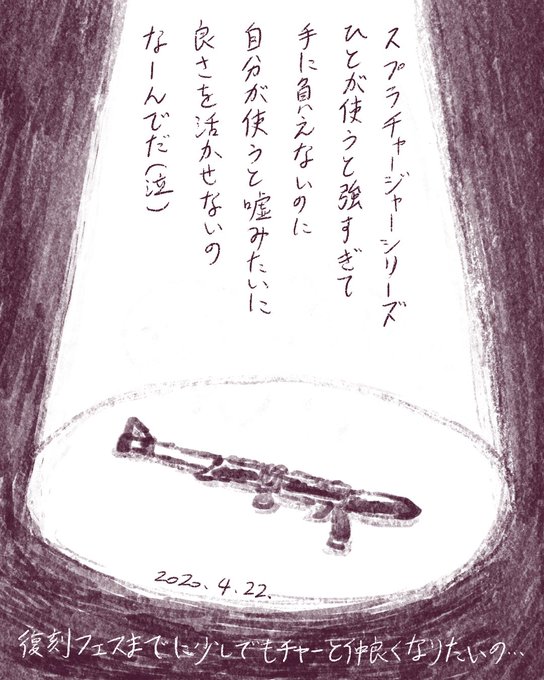 スプラチャージャーシリーズ
ひとが使うと強すぎて
手に負えないのに
自分が使うと嘘みたいに
良さを活かせないの
なーんでだ(泣)
2020.4.22.
復刻フェスまでに少しでもチャーと仲良くなりたいの…